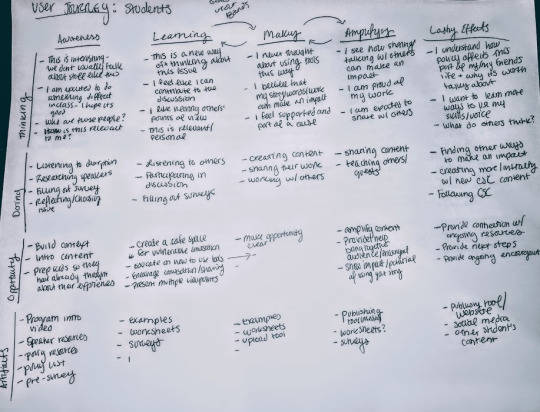 User Journey: Students
Awareness
Learning
Making
Amplify
Lasting Effects
Thinking
- This is interesting -
we don't usually talk
about stuff like this
- I am excited to do
something different
in class - I hope it's
good
- Who are those people?
- How is this relevant
to me?
- This is a new way
of thinking about
this issue
- I feel like I can
contribute to the
discussion
- I like hearing others'
points of view
- This is relevant/
personal
- I never thought
about using tools
this way
- I believe that
my story/voice/work
can make an impact
- I feel supported and
part of a cause
- I see how sharing/
talking w/ others
can make an
impact
- I am proud of
my work
- I am excited to
share w/ others
- I understand how
policy affects this
part of my/my friends
life + why it's worth
talking about
- I want to learn more
ways to use my
skills/voice
- What do others think?
Doing
- Listening to
- Researching speakers
- Filling out survey
- Reflecting/choosing
issue
- Listening to others
- Participating in
discussion
- Filling out surveys
- creating content
- sharing their work
- working w/ others
- sharing content
- teaching others/
guests
- Finding other ways
to make an impact
- creating more/interacting
w/ new CSC content
- Following CSC
Opportunity
- Build context
- Intro content
- prep kids so they
had already thought
about their experiences
- Create a safe space
for vulnerable
- Educate on how to use tools
- Encourage conversation/sharing
- Present multiple viewpoints
- Make opportunity
clear
- amplify content
- Provide help
audience/
- Show impact/potential
of using your story
- Provide connection w/
ongoing resources
- Provide next steps
- Provide ongoing encouragement
Artifacts
- Program intro
video
- Speaker resources
- policy resources
- policy list
- pre-survey
- examples
- worksheets
- surveys
- examples
- worksheets
- upload tool
- Publishing
tool
- worksheets?
- surveys
- Publishing tool/
website
- social media
- other student's
content